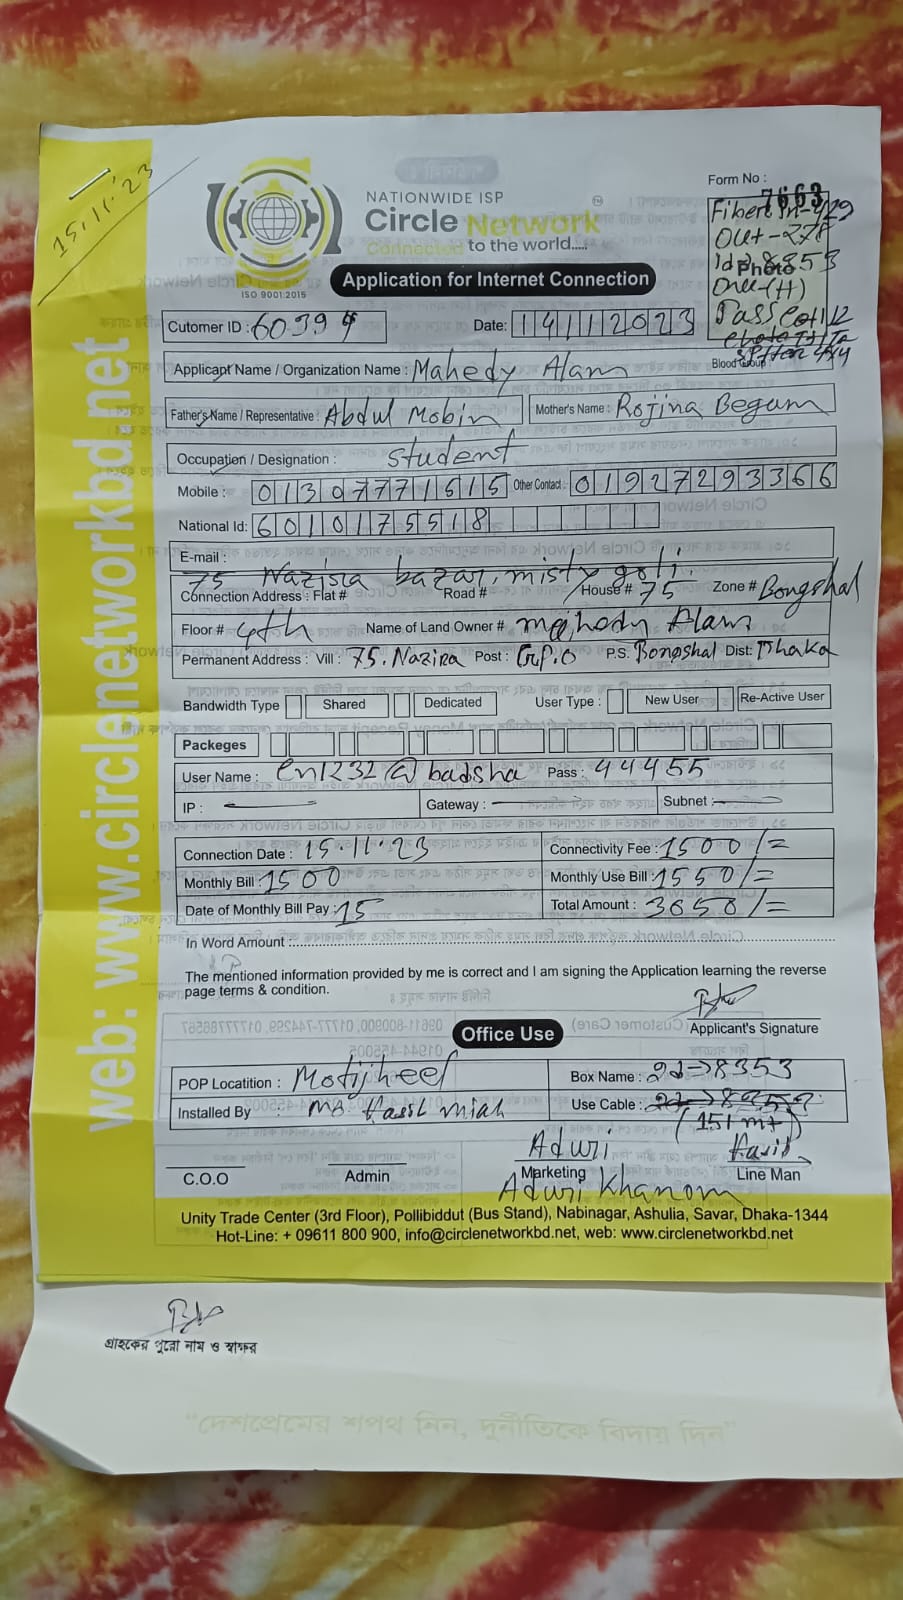 15.11.23
NATIONWIDE ISP
Circle Network
Connected to the world.....
ISO 9001:2015
Application for Internet Connection
Form No :
7663
Photo
Out-278
Blood Group :
Cutomer ID : 60394
Date: 14112023
Applicant Name / Organization Name : Mahedy Alam
Father's Name / Representative : Abdul Mobin Mother's Name : Rojina Begum
Occupation / Designation : Student
Mobile : 01307771515 Other Contact : 01927293366
National Id: 6010175518
E-mail :
75 Nazira bazar, misty goli.
Connection Address : Flat # Road # House # 75 Zone # Bongshal
Floor # 4th Name of Land Owner # Alam
Permanent Address : Vill : 75. Nazira Post : G.P.O P.S. Bongshal Dist: Dhaka
Bandwidth Type Shared Dedicated User Type : New User Re-Active User
Packeges
User Name : cn1232@badsha Pass : 44455
IP : Gateway : Subnet :
Connection Date : 15.11.23 Connectivity Fee : 1500/=
Monthly Bill : 1500 Monthly Use Bill : 1550/=
Date of Monthly Bill Pay : 15 Total Amount : 3050/=
In Word Amount :
The mentioned information provided by me is correct and I am signing the Application learning the reverse
page terms & condition.
Applicant's Signature
Office Use
POP Locatition : Motijheel Box Name : 8353
Installed By : miah Use Cable :
(151 mt)
Aduri
C.O.O Admin Marketing Line Man
Aduri Khanom
Unity Trade Center (3rd Floor), Pollibiddut (Bus Stand), Nabinagar, Ashulia, Savar, Dhaka-1344
Hot-Line: + 09611 800 900, info@circlenetworkbd.net, web: www.circlenetworkbd.net
web: www.circlenetworkbd.net
গ্রাহকের পুরো নাম ও স্বাক্ষর
"দেশপ্রেমের শপথ নিন, দুর্নীতিকে বিদায় দিন"